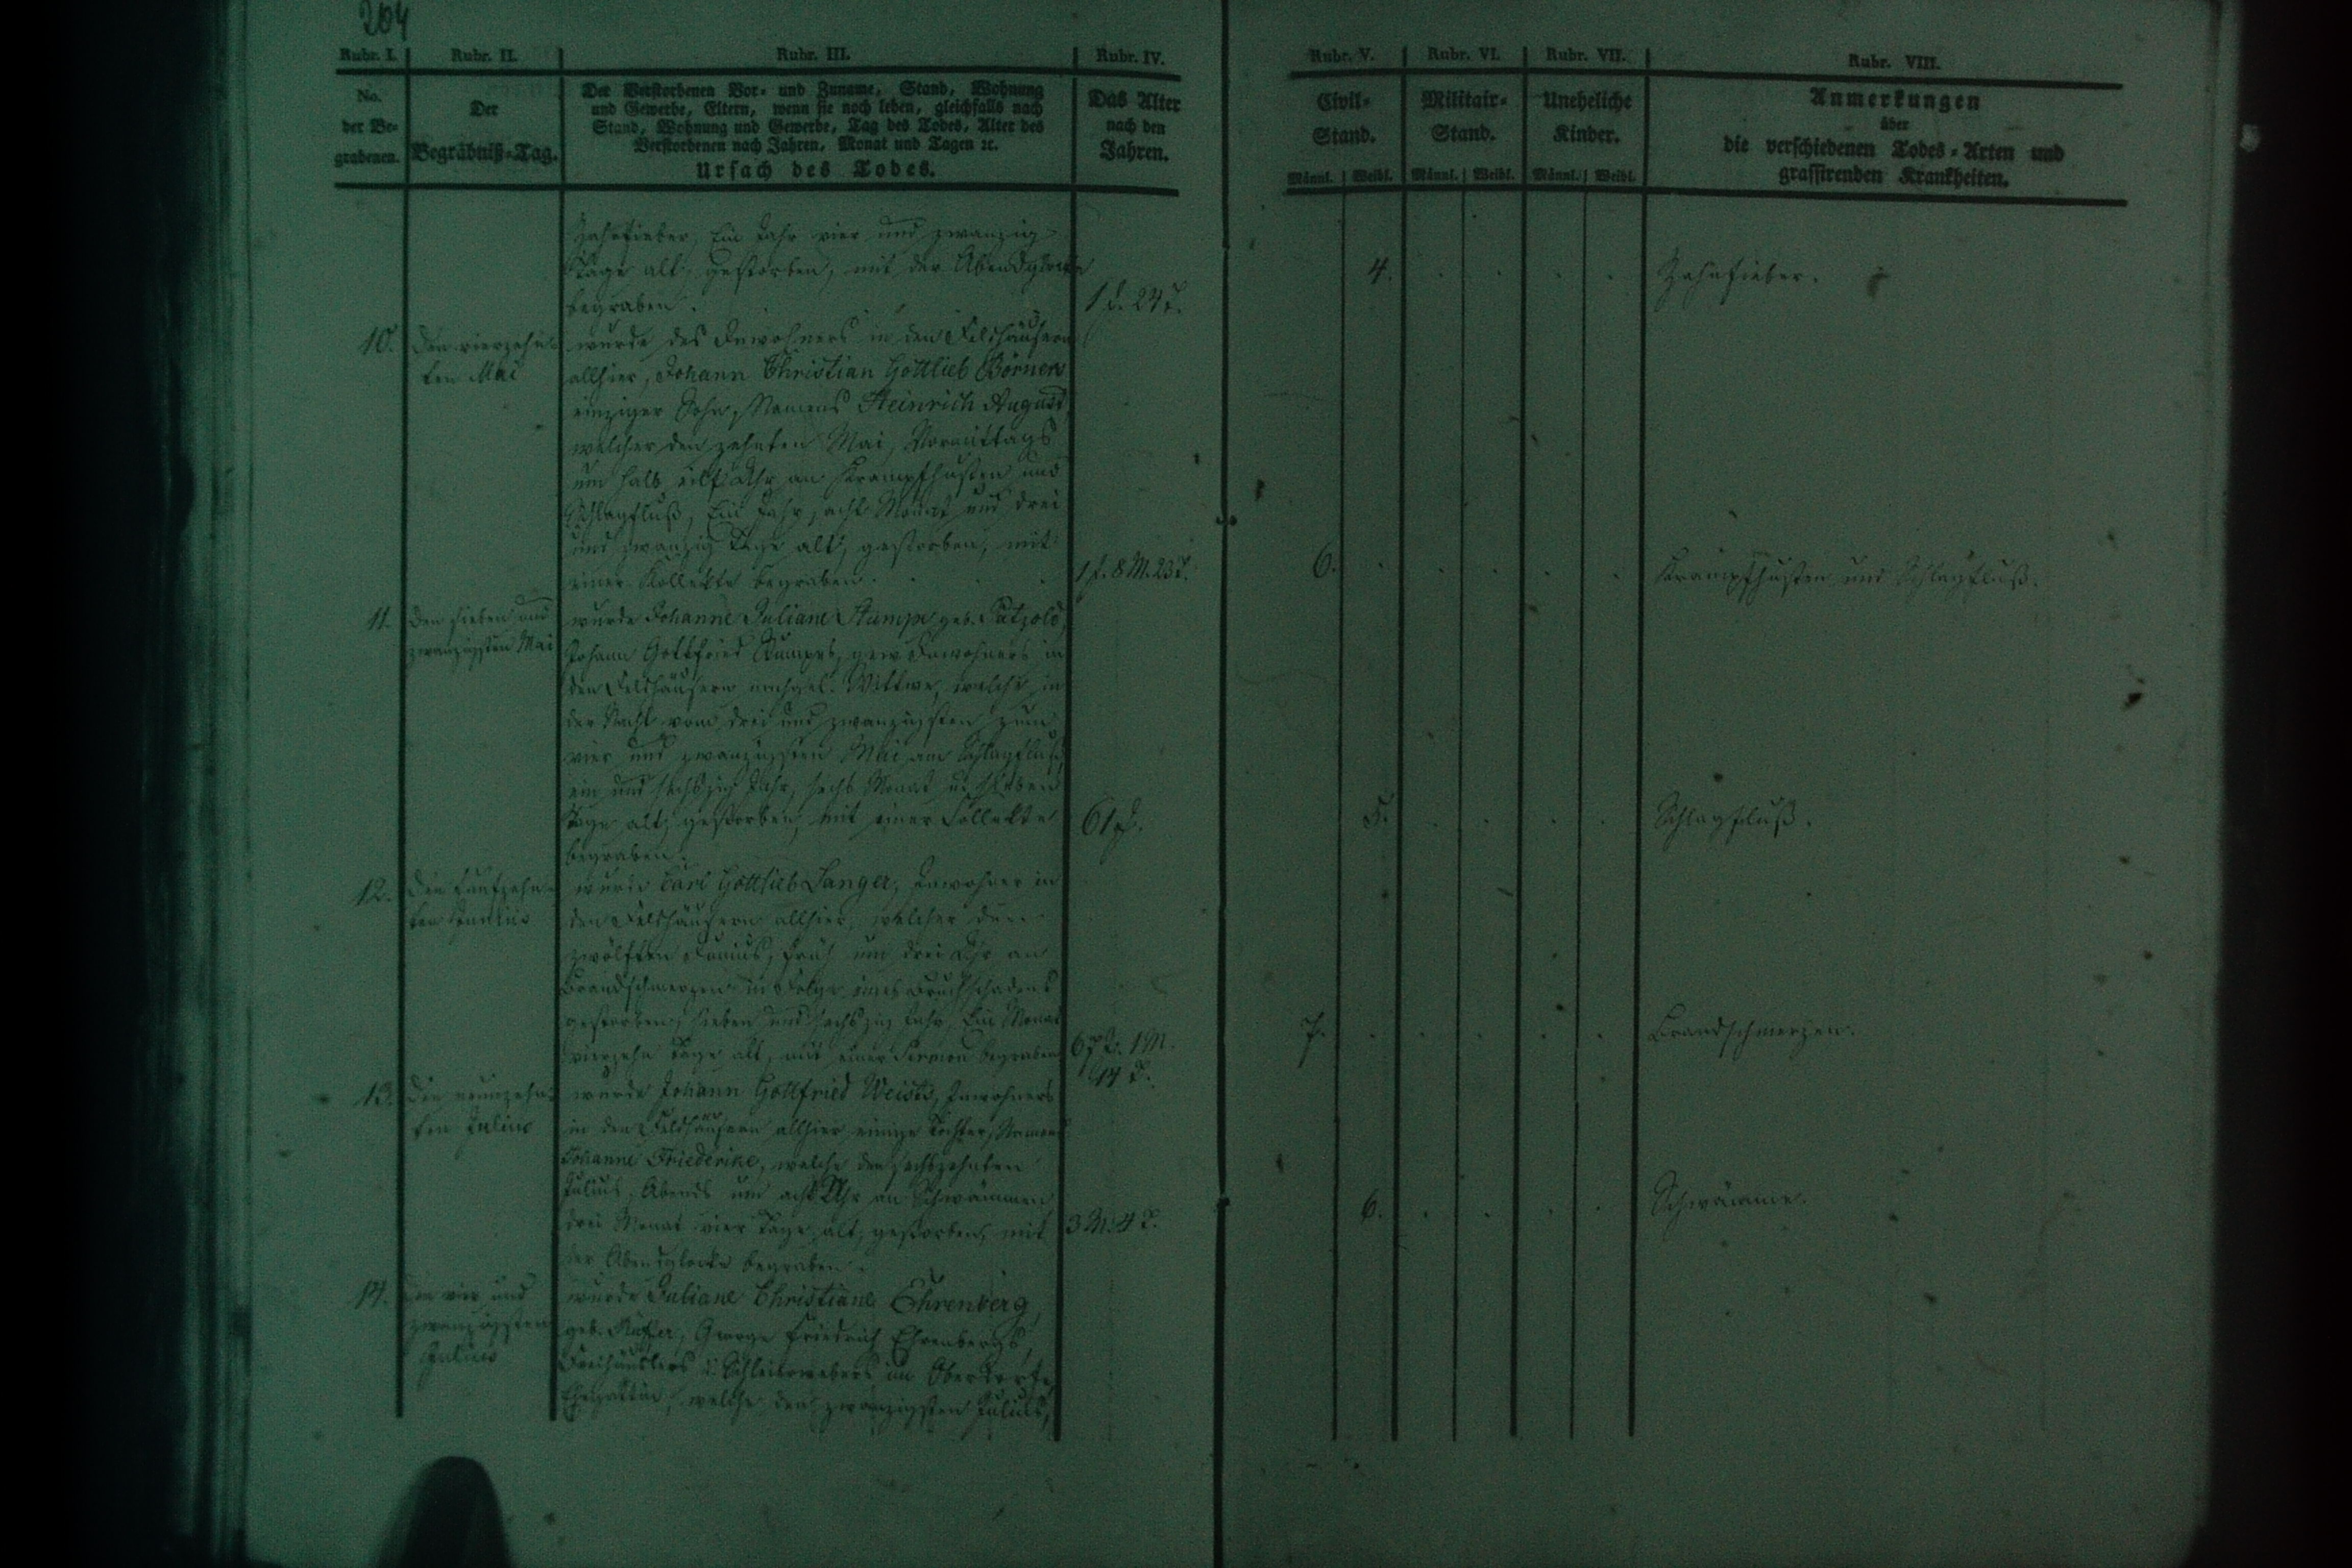 204
Rubr. I. Rubr. II. Rubr. III. Rubr. IV. Rubr. V. Rubr. VI. Rubr. VII. Rubr. VIII.
No.
der Be-
grabenen.
Der
Begräbniß-Tag.
Der Verstorbenen Vor- und Zuname, Stand, Wohnung
und Gewerbe, Eltern, wenn sie noch leben, gleichfalls nach
Stand, Wohnung und Gewerbe, Tag des Todes, Alter des
Verstorbenen nach Jahren, Monat und Tagen ꝛc.
Ursach des Todes.
Das Alter
nach den
Jahren.
Civil-
Stand.
Männl. Weibl.
Militair-
Stand.
Männl. Weibl.
Uneheliche
Kinder.
Männl. Weibl.
Anmerkungen
über
die verschiedenen Todes-Arten und
grassirenden Krankheiten.
Zahnfieber, Ein Jahr vier und zwanzig
Tage alt, gestorben, mit der Abendglocke
begraben.
1 J. 24 T.
4.
Zahnfieber.
10.
Den vierzehn-
ten Mai
wurde des Inwohners in den Feldhäusern
allhier, Johann Christian Gottlieb Börners
einziger Sohn, Namens Heinrich August,
welcher den zehnten Mai, Vormittags
um halb eilf Uhr an Krampfhusten und
Schlagfluß, Ein Jahr, acht Monat und drei
und zwanzig Tage alt, gestorben, mit
einer Kollekte begraben.
1 J. 8 M. 23 T.
6.
Krampfhusten und Schlagfluß.
11.
Den sieben und
zwanzigsten Mai
wurde Johanne Juliane Stumpe geb. Pätzold,
Johann Gottfried Stumpes, gew. Inwohners in
den Feldhäusern nachgel. Wittwe, welche in
der Nacht vom drei und zwanzigsten zum
vier und zwanzigsten Mai am Schlagfluß,
ein und sechszig Jahr, sechs Monat u. sieben
Tage alt, gestorben, mit einer Collekte
begraben.
61 J.
5.
Schlagfluß.
12.
Den funfzehn-
ten Junius
wurde Carl Gottlieb Langer, Inwohner in
den Feldhäusern allhier, welcher den
zwölften Junius, früh um drei Uhr an
Brandschmerzen in Folge eines Bruchschadens
gestorben, sieben und sechszig Jahr, Ein Monat
vierzehn Tage alt, mit einer Sermon begraben
67 J. 1 M.
14 T.
7.
Brandschmerzen.
13.
Den neunzehn-
ten Julius
wurde Johann Gottfried Weists, Inwohners
in den Feldhäusern allhier einzige Tochter, Namens
Johanne Friederike, welche den sechszehnten
Julius, Abends um acht Uhr an Schwämmen
drei Monat vier Tage alt, gestorben, mit
der Abendglocke begraben.
3 M. 4 T.
6.
Schwämme.
14.
Den vier und
zwanzigsten
Julius
wurde Juliane Christiane Ehrenberg,
geb. George Friedrich Ehrenbergs,
Freihäuslers u. im Oberdorfe,
Ehegattin, welche den zwanzigsten Julius,